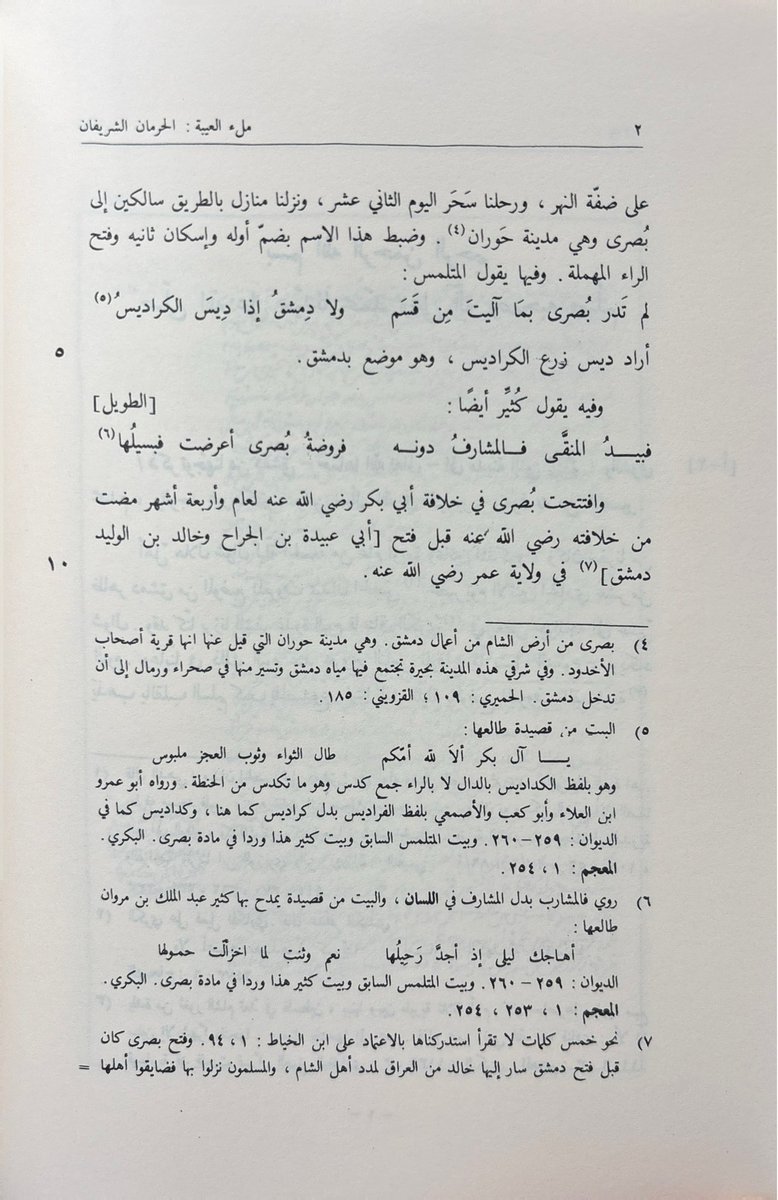 ٢ ملء العيبة : الحرمان الشريفان
على ضفّة النهر ، ورحلنا سَحَر اليوم الثاني عشر ، ونزلنا منازل بالطريق سالكين إلى
بُصرى وهي مدينة حَوران(٤) . وضبط هذا الاسم بضمّ أوله وإسكان ثانيه وفتح
الراء المهملة . وفيها يقول المتلمس :
لم تَدر بُصرى بمَا آليتَ مِن قَسَم ولا دِمشقُ إذا دِيسَ الكراديسُ(٥)
أراد ديس زرع الكراديس ، وهو موضع بدمشق .
٥
وفيه يقول كُثيِّر أيضًا : [الطويل]
فبيدُ المنقَّى فالمشارفُ دونه فروضةُ بُصرى أعرضت فبسيلُها(٦)
وافتتحت بُصرى في خلافة أبي بكر رضي الله عنه لعام وأربعة أشهر مضت
من خلافته رضي الله عنه قبل فتح [أبي عبيدة بن الجراح وخالد بن الوليد
دمشق](٧) في ولاية عمر رضي الله عنه.
١٠
٤) بصرى من أرض الشام من أعمال دمشق. وهي مدينة حوران التي قيل عنها انها قرية أصحاب
الأخدود . وفي شرقي هذه المدينة بحيرة تجتمع فيها مياه دمشق وتسير منها في صحراء ورمال إلى أن
تدخل دمشق. الحميري : ١٠٩ ؛ القزويني : ١٨٥.
٥) البيت من قصيدة طالعها:
يا آل بكر ألاَ لله أمّكم طال الثواء وثوب العجز ملبوس
وهو بلفظ الكداديس بالدال لا بالراء جمع كدس وهو ما تكدس من الحنطة. ورواه أبو عمرو
ابن العلاء وأبو كعب والأصمعي بلفظ الفراديس بدل كراديس كما هنا ، وكداديس كما في
الديوان : ٢٥٩-٢٦٠. وبيت المتلمس السابق وبيت كثير هذا وردا في مادة بصرى. البكري.
المعجم : ١ ، ٢٥٤.
٦) روي فالمشارب بدل المشارف في اللسان ، والبيت من قصيدة يمدح بها كثير عبد الملك بن مروان
طالعها :
أهاجك ليلى إذ أجدَّ رَحِيلُها نعم وثنت لما اخزألّت حمولها
الديوان : ٢٥٩ - ٢٦٠. وبيت المتلمس السابق وبيت كثير هذا وردا في مادة بصرى. البكري.
المعجم : ١ ، ٢٥٣ ، ٢٥٤.
٧) نحو خمس كلمات لا تقرأ استدركناها بالاعتماد على ابن الخياط : ١ ، ٩٤. وفتح بصرى كان
قبل فتح دمشق سار إليها خالد من العراق لمدد أهل الشام ، والمسلمون نزلوا بها فضايقوا أهلها =